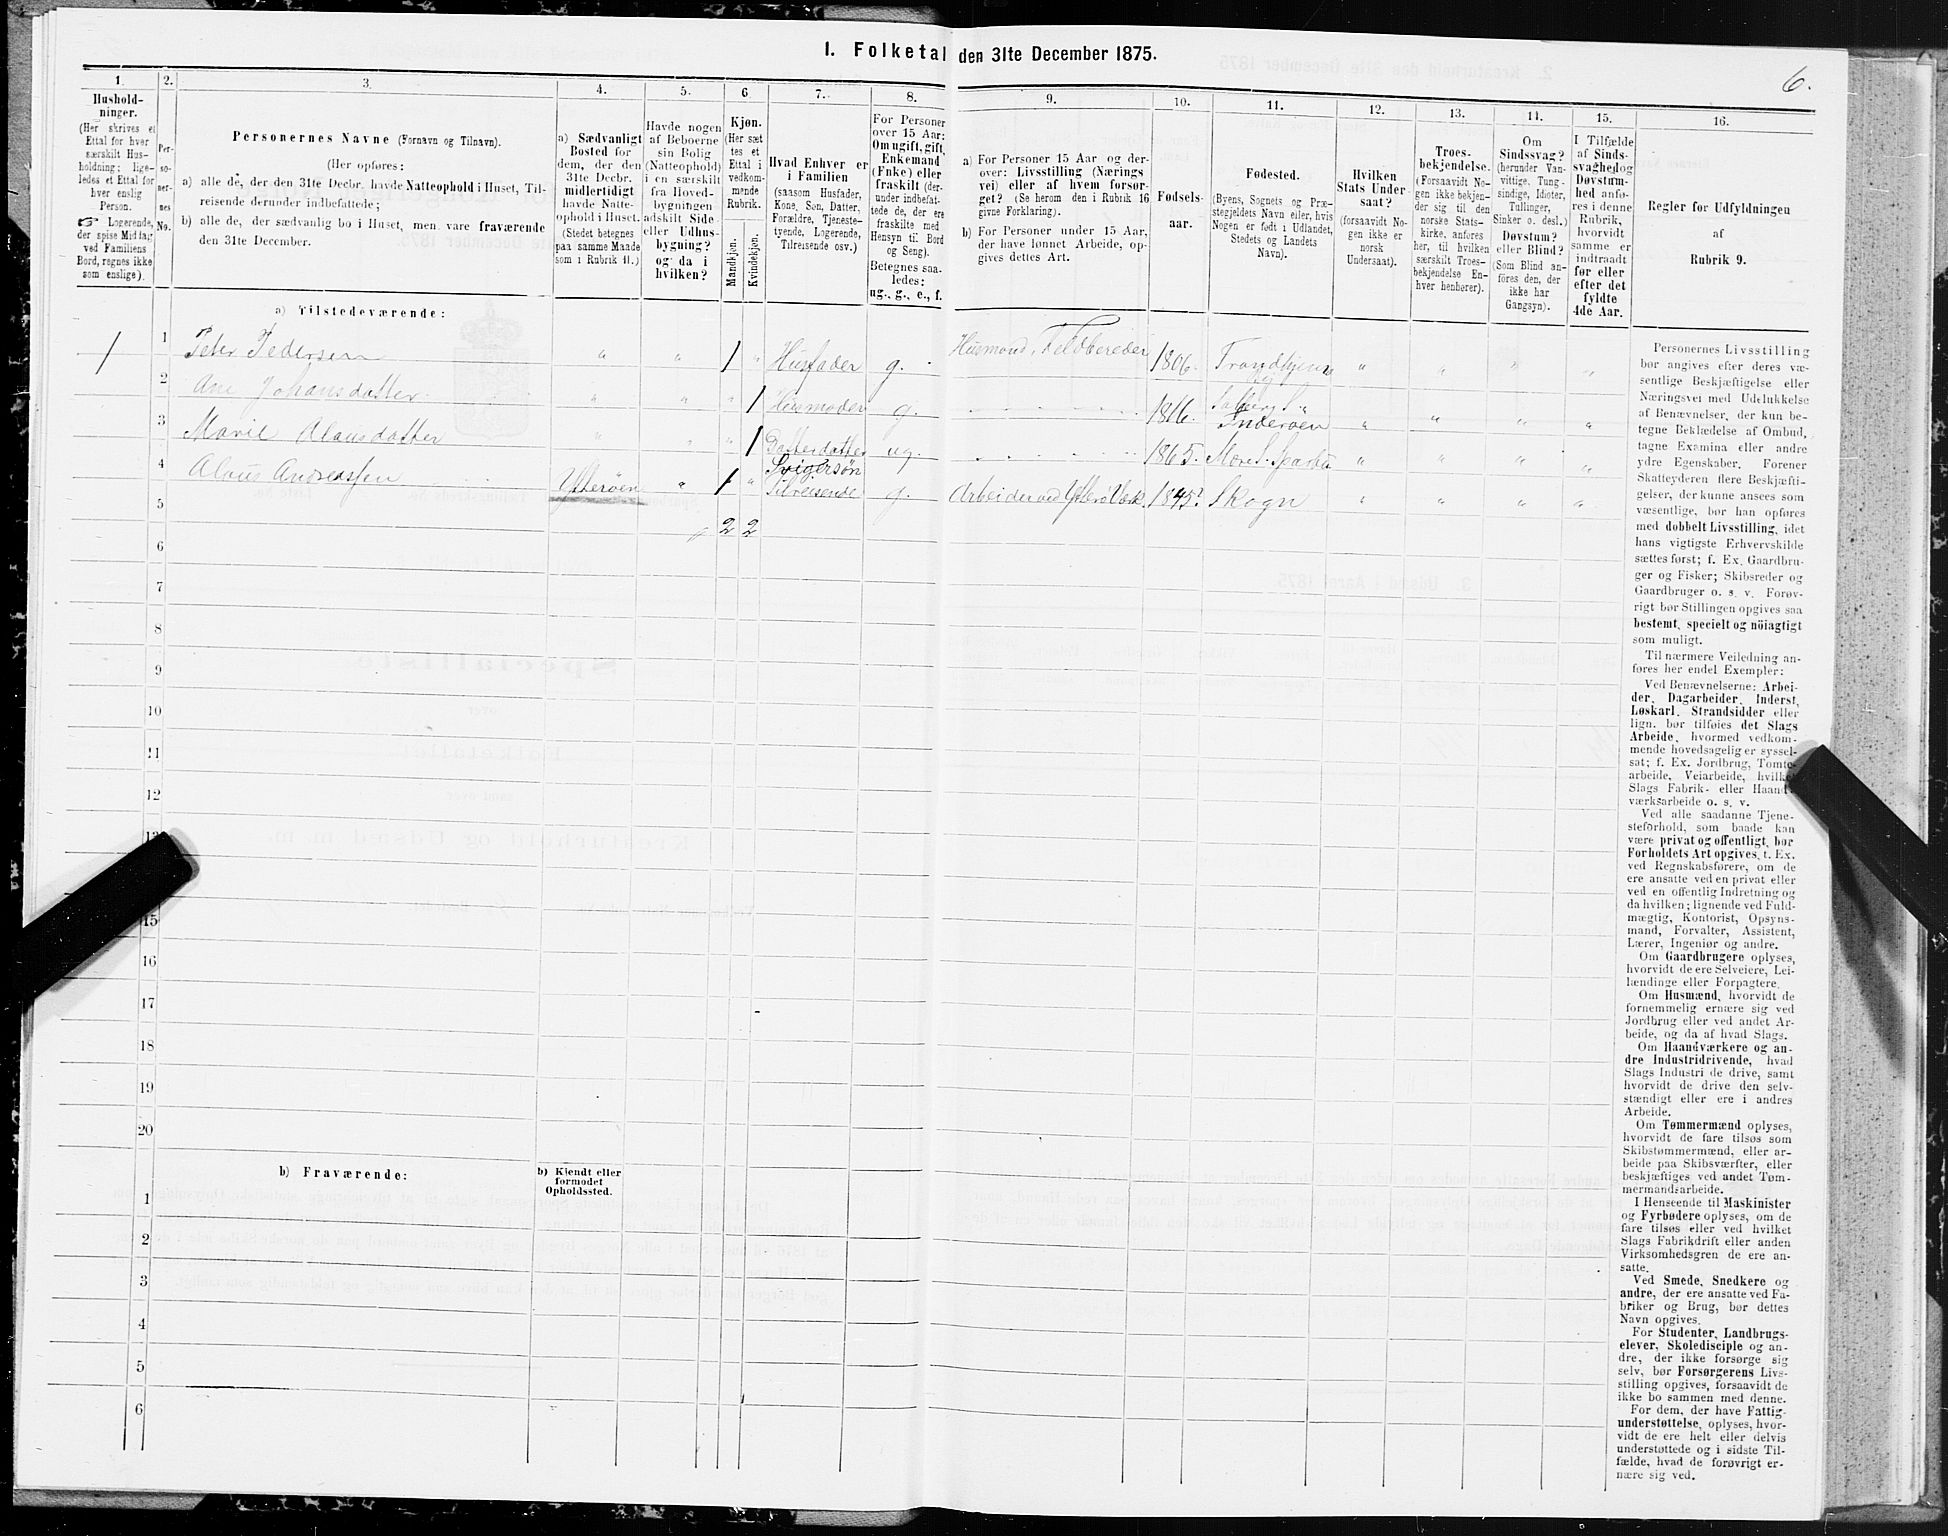 I. Folketal den 31te December 1875.
6.
1.
Hushold-
ninger.
(Her skrives et
Ettal for hver
særskilt Hus-
holdning; lige-
ledes et Ettal for
hver enslig
Person.
☞ Logerende,
der spise Middag
ved Familiens
Bord, regnes ikke
som enslige).
2.
Per-
so-
ner-
nes
No.
3.
Personernes Navne (Fornavn og Tilnavn).
(Her opføres:
a) alle de, der den 31te Decbr. havde Natteophold i Huset, Til-
reisende derunder indbefattede;
b) alle de, der sædvanlig bo i Huset, men vare fraværende
den 31te December.
4.
a) Sædvanligt
Bosted for
dem, der den
31te Decbr.
midlertidigt
havde Natte-
ophold i Huset.
(Stedet betegnes
paa samme Maade
som i Rubrik 11.)
5.
Havde nogen
af Beboerne
sin Bolig
(Natteophold)
i en særskilt
fra Hoved-
bygningen
adskilt Side-
eller Udhus-
bygning?
og da i
hvilken?
6.
Kjøn.
(Her sæt-
tes et
Ettal i
vedkom-
mende
Rubrik.
Mandkjøn.
Kvindekjøn.
7.
Hvad Enhver er
i Familien
(saasom Husfader,
Kone, Søn, Datter,
Forældre, Tjeneste-
tyende, Logerende,
Tilreisende osv.)
8.
For Personer
over 15 Aar:
Om ugift, gift,
Enkemand
(Enke) eller
fraskilt (der-
under indbefat-
tede de, der ere
fraskilte med
Hensyn til Bord
og Seng).
Betegnes saa-
ledes:
ug., g., e., f.
9.
a) For Personer 15 Aar og der-
over: Livsstilling (Nærings
vei) eller af hvem forsør-
get? (Se herom den i Rubrik 16
givne Forklaring).
b) For Personer under 15 Aar,
der have lønnet Arbeide, op-
gives dettes Art.
10.
Fødsels-
aar.
11.
Fødested.
(Byens, Sognets og Præ-
stegjeldets Navn eller, hvis
Nogen er født i Udlandet,
Stedets og Landets
Navn).
12.
Hvilken
Stats Under-
saat?
(forsaavidt No-
gen ikke er
norsk
Undersaat).
13.
Troes-
bekjendelse.
(Forsaavidt No-
gen ikke bekjen-
der sig til den
norske Stats-
kirke, anføres
her, til hvilken
særskilt Troes-
bekjendelse En-
hver henhører).
14.
Om
Sindssvag?
(herunder Van-
vittige, Tung-
sindige, Idioter,
Tullinger,
Sinker o. desl.)
Døvstum?
eller Blind?
(Som Blind an-
føres den, der
ikke har
Gangsyn).
15.
I Tilfælde
af Sinds-
svaghed og
Døvstum-
hed anfø-
res i denne
Rubrik,
hvorvidt
samme er
indtraadt
før eller
efter det
fyldte
4de Aar.
16.
Regler for Udfyldningen
af
Rubrik 9.
a) Tilstedeværende:
1 1 Peter Pedersen " " 1 " Husfader g. Husmand, Feldbereder 1806. Trondhjem " " " "
2 Ane Johansdatter " " " 1 Husmoder g. 1816. Inderøen " " " "
3 Marie Olausdatter " " " 1 Datterdatter ug. 1865. " " " "
4 Olaus Andreassen Ytterøen " 1 " Svigersøn
Tilreisende g. Arbeider ved Ytterø Værk 1845? Skogn " " " "
5
2 2
6
7
8
9
10
11
12
13
15
16
17
18
19
20
b) Fraværende:
b) Kjendt eller
formodet
Opholdssted.
1
2
3
4
5
6
Personernes Livsstilling
bør angives efter deres væ-
sentlige Beskjæftigelse eller
Næringsvei med Udelukkelse
af Benævnelser, der kun be-
tegne Beklædelse af Ombud,
tagne Examina eller andre
ydre Egenskaber. Forener
Skatteyderen flere Beskjæfti-
gelser, der kunne ansees som
væsentlige, bør han opføres
med dobbelt Livsstilling, idet
hans vigtigste Erhvervskilde
sættes først; f. Ex. Gaardbru-
ger og Fisker; Skibsreder og
Gaardbruger o. s. v. Forøv-
rigt bør Stillingen opgives saa
bestemt, specielt og nöiagtigt
som muligt.
Til nærmere Veiledning an-
føres her endel Exempler:
Ved Benævnelserne: Arbei-
der, Dagarbeider, Inderst,
Løskarl, Strandsidder eller
lign. bør tilføies det Slags
Arbeide, hvormed vedkom-
mende hovedsagelig er syssel-
sat; f. Ex. Jordbrug, Tomte-
arbeide, Veiarbeide, hvilket
Slags Fabrik- eller Haand-
værksarbeide o. s. v.
Ved alle saadanne Tjene-
steforhold, som baade kan
være privat og offentligt, bør
Forholdets Art opgives, t. Ex.
ved Regnskabsførere, om de
ere ansatte ved en privat eller
ved en offentlig Indretning og
da hvilken; lignende ved Fuld-
mægtig, Kontorist, Opsyns-
mand, Forvalter, Assistent,
Lærer, Ingeniør og andre.
Om Gaardbrugere oplyses,
hvorvidt de ere Selveiere, Lei-
lændinge eller Forpagtere.
Om Husmænd, hvorvidt de
fornemmelig ernære sig ved
Jordbrug eller ved andet Ar-
beide, og da af hvad Slags.
Om Haandværkere og an-
dre Industridrivende, hvad
Slags Industri de drive, samt
hvorvidt de drive den selv-
stændigt eller ere i andres
Arbeide.
Om Tømmermænd oplyses,
hvorvidt de fare tilsøs som
Skibstømmermænd, eller ar-
beide paa Skibsværfter, eller
beskjæftiges ved andet Tøm-
mermandsarbeide.
I Henseende til Maskinister
og Fyrbødere oplyses, om de
fare tilsøs eller ved hvilket
Slags Fabrikdrift eller anden
Virksomhedsgren de ere an-
satte.
Ved Smede, Snedkere og
andre, der ere ansatte ved Fa-
briker og Brug, bør dettes
Navn opgives.
For Studenter, Landbrugs-
elever, Skoledisciple og an-
dre, der ikke forsørge sig
selv, bør Forsørgerens Livs-
stilling opgives, forsaavidt de
ikke bo sammen med denne.
For dem, der have Fattig-
understøttelse, oplyses, hvor-
vidt de ere helt eller delvis
understøttede og i sidste Til-
fælde, hvad de forøvrigt er-
nære sig ved.